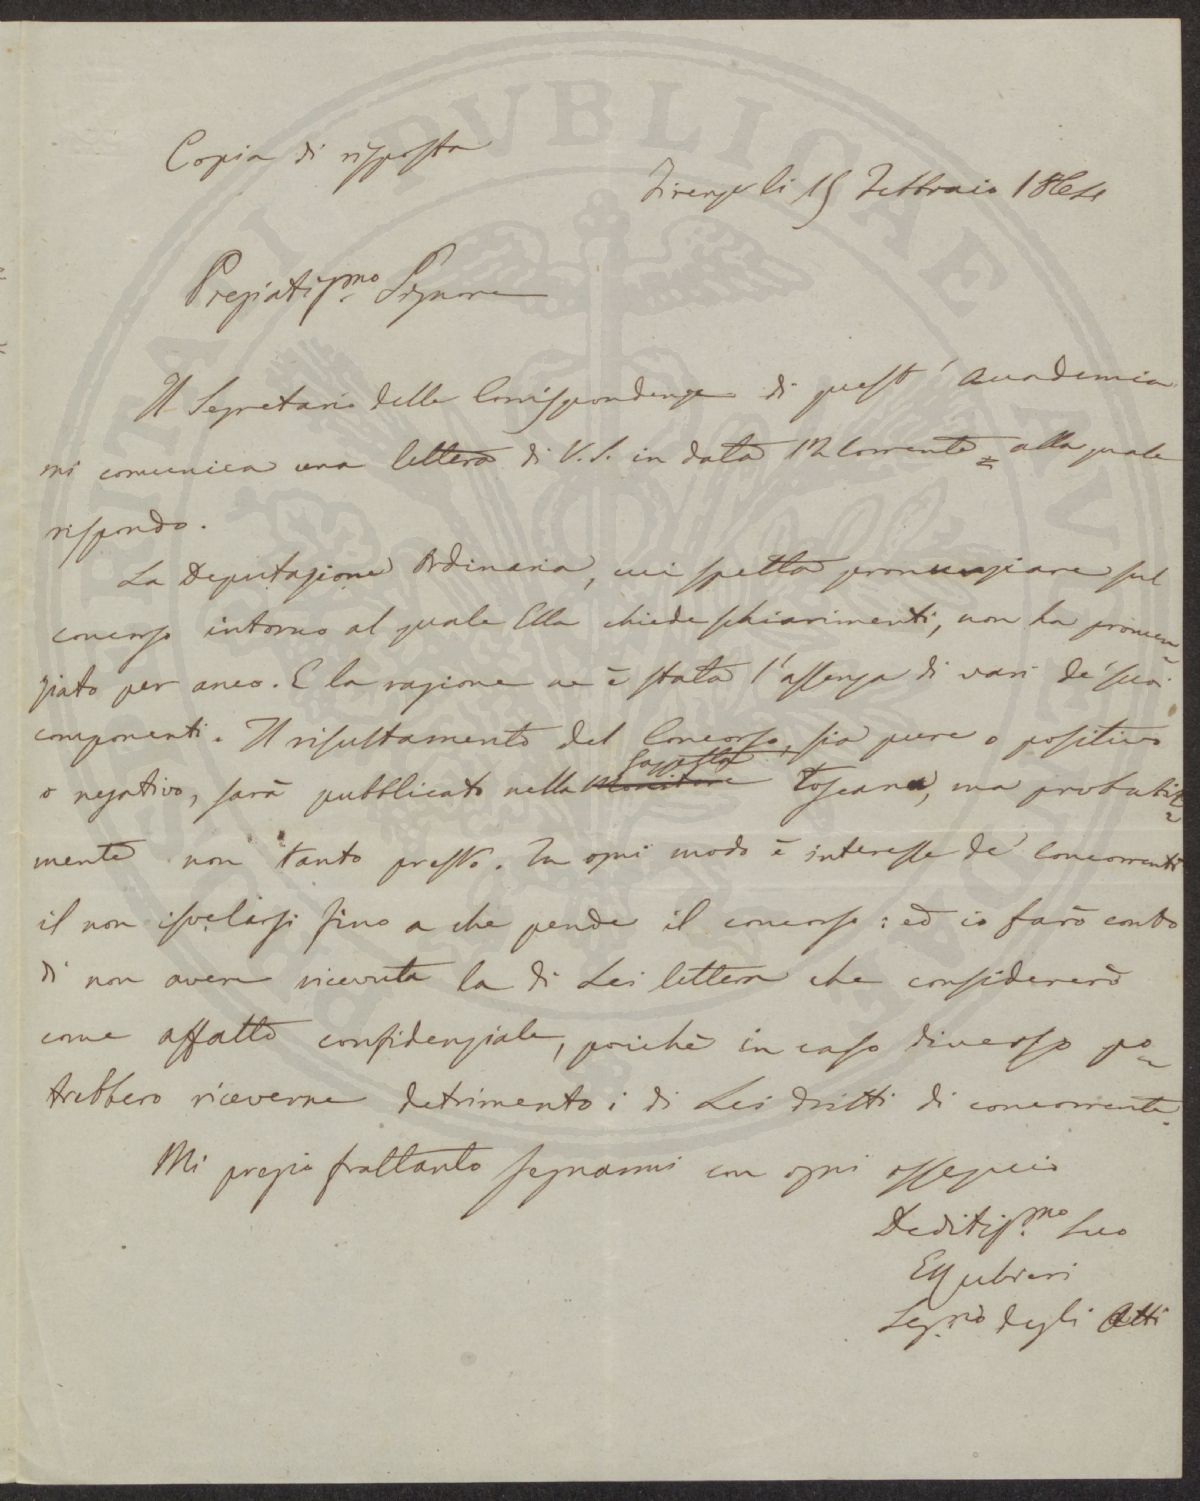 Copia di risposta
Firenze li 15 Febbraio 1864
Pregiatis.mo Signore
Il Segretario delle Corrispondenze di quest' Accademia
mi comunica una lettera di V. S. in data 12 Corrente = alla quale
rispondo.
La Deputazione Ordinaria, cui spetta pronunziare sul
concorso intorno al quale Ella chiede schiarimenti, non ha pronun=
ziato per anco. E la ragione ne è stata l' assenza di vari de' suoi
componenti. Il risultamento del Concorso, sia pure o positivo
Gazzetta
o negativo, sarà pubblicato nella Monitore Toscana, ma probabil=
mente non tanto presto. In ogni modo è interesse de' Concorrenti
il non isvelarsi fino a che pende il concorso: ed io farò conto
di non avere ricevuta la di Lei lettera che considererò
come affatto confidenziale, poichè in caso diverso po=
trebbero riceverne detrimento i di Lei dritti di concorrente.
Mi pregio frattanto segnarmi con ogni ossequio
Deditis.mo Suo
Seg.rio degli Atti
PUBLICAE